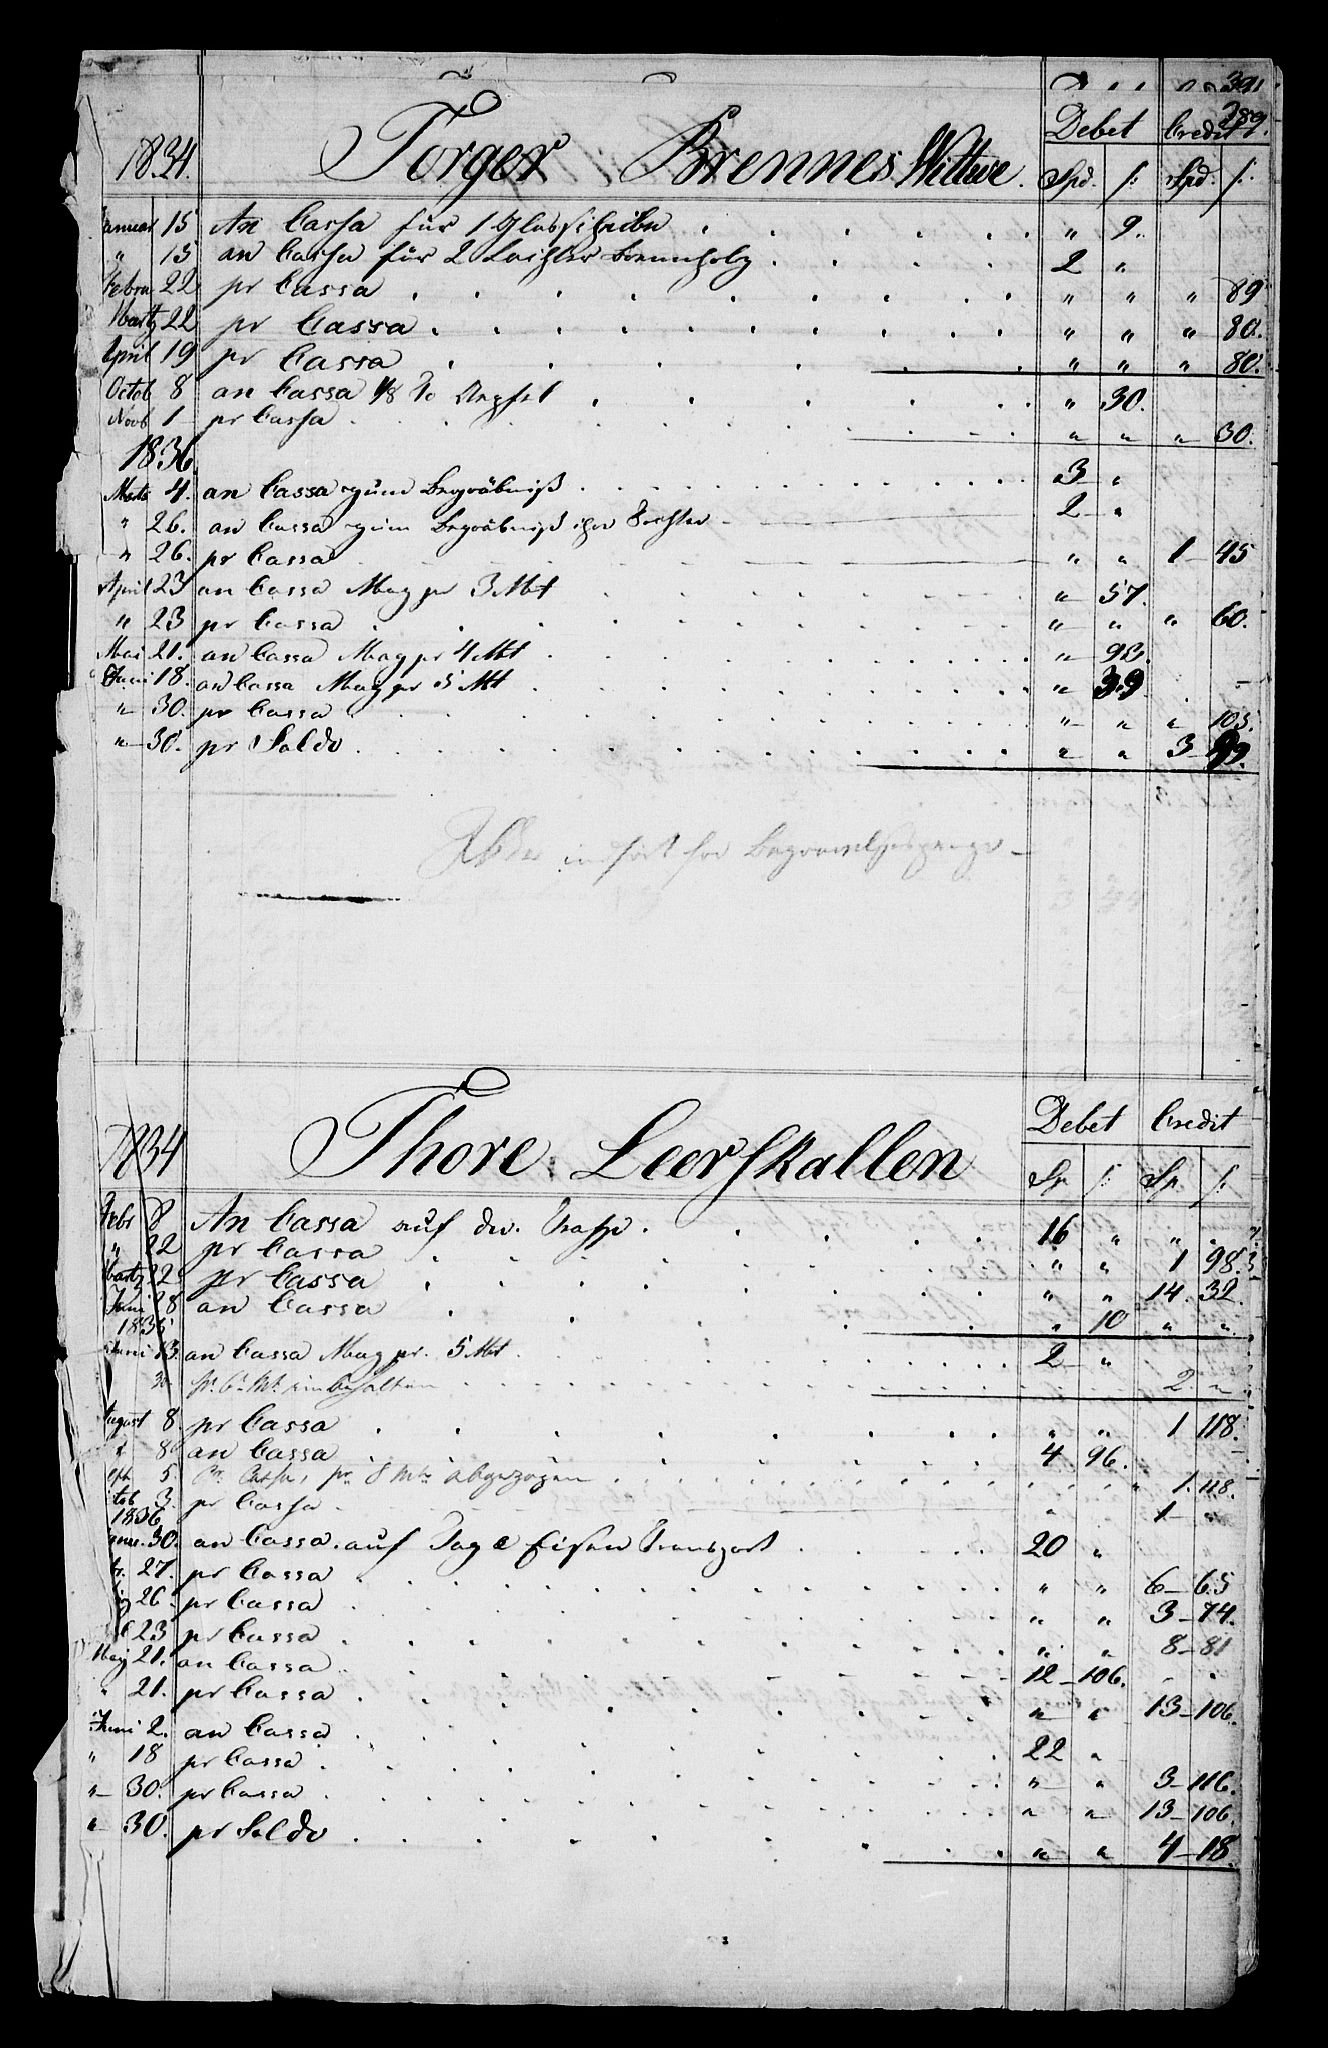 391
289.
Debet Credit
1834. Torger Brennes Wittwe. Spd. ß: Spd. ß:
Januar 15 An Cassa für 1 Glasscheibe " 9.
" 15 an Cassa für 2 Lachter Brennholz 2 "
Febru 22 pr Cassa " " " 89
Martz 22 pr Cassa " " " 80.
April 19 pr Cassa " " " 80.
Octob 8 an Cassa 1/8 To " 30.
Novb 1 pr Cassa " " " 30.
1836
Marts 4. an Cassa zum Begräbniß 3 "
" 26. an Cassa zum Begräbniß ihre Tochter 2 "
" 26. pr Cassa " " 1 - 45
April 23 an Cassa Mag pr 3 Mt " 57.
" 23 pr Cassa " " " 60.
Mai 21. an Cassa Mag pr 4 Mt " 93.
Juni 18. an Cassa Mag pr 5 Mt " 39
" 30. pr Cassa " " " 105.
" 30. pr Saldo " " 3 - 99.
indfört for Begravelsespenge
Debet Credit
1834 Thore Leerskallen Sp ß: Sp ß:
Febr 8 An Cassa auf div. Transp. 16 " "
" 22 pr Cassa " " 1 98.
Martz 22 pr Cassa " " 14. 32.
Juni 28 an Cassa " 10 " "
1835
Juni 13. an Cassa Mag pr. 5 Mt 2 "
30 pr. 6. Mt. einbehalten 2. "
August 8. pr Cassa " " 1 118.
" 8 an Cassa 4 96.
Sept 5. Pr. Cassa, pr 8 Mts abgezogen " " 1. 118.
Octob 3. pr Cassa " " 1 - "
1836
Janu. 30. an Cassa auf Tag & Eisen Transport 20 "
27. pr Cassa " " 6 - 65
26. pr Cassa " " 3 - 74.
23 pr Cassa " " 8 - 81
May 21. an Cassa 12 - 106.
" 21. pr Cassa " " 13 - 106.
Juni 2. an Cassa 22 "
" 18 pr Cassa " " 3 - 116.
" 30. pr Cassa " " 13 - 106.
" 30. pr Saldo " " 4 - 18.